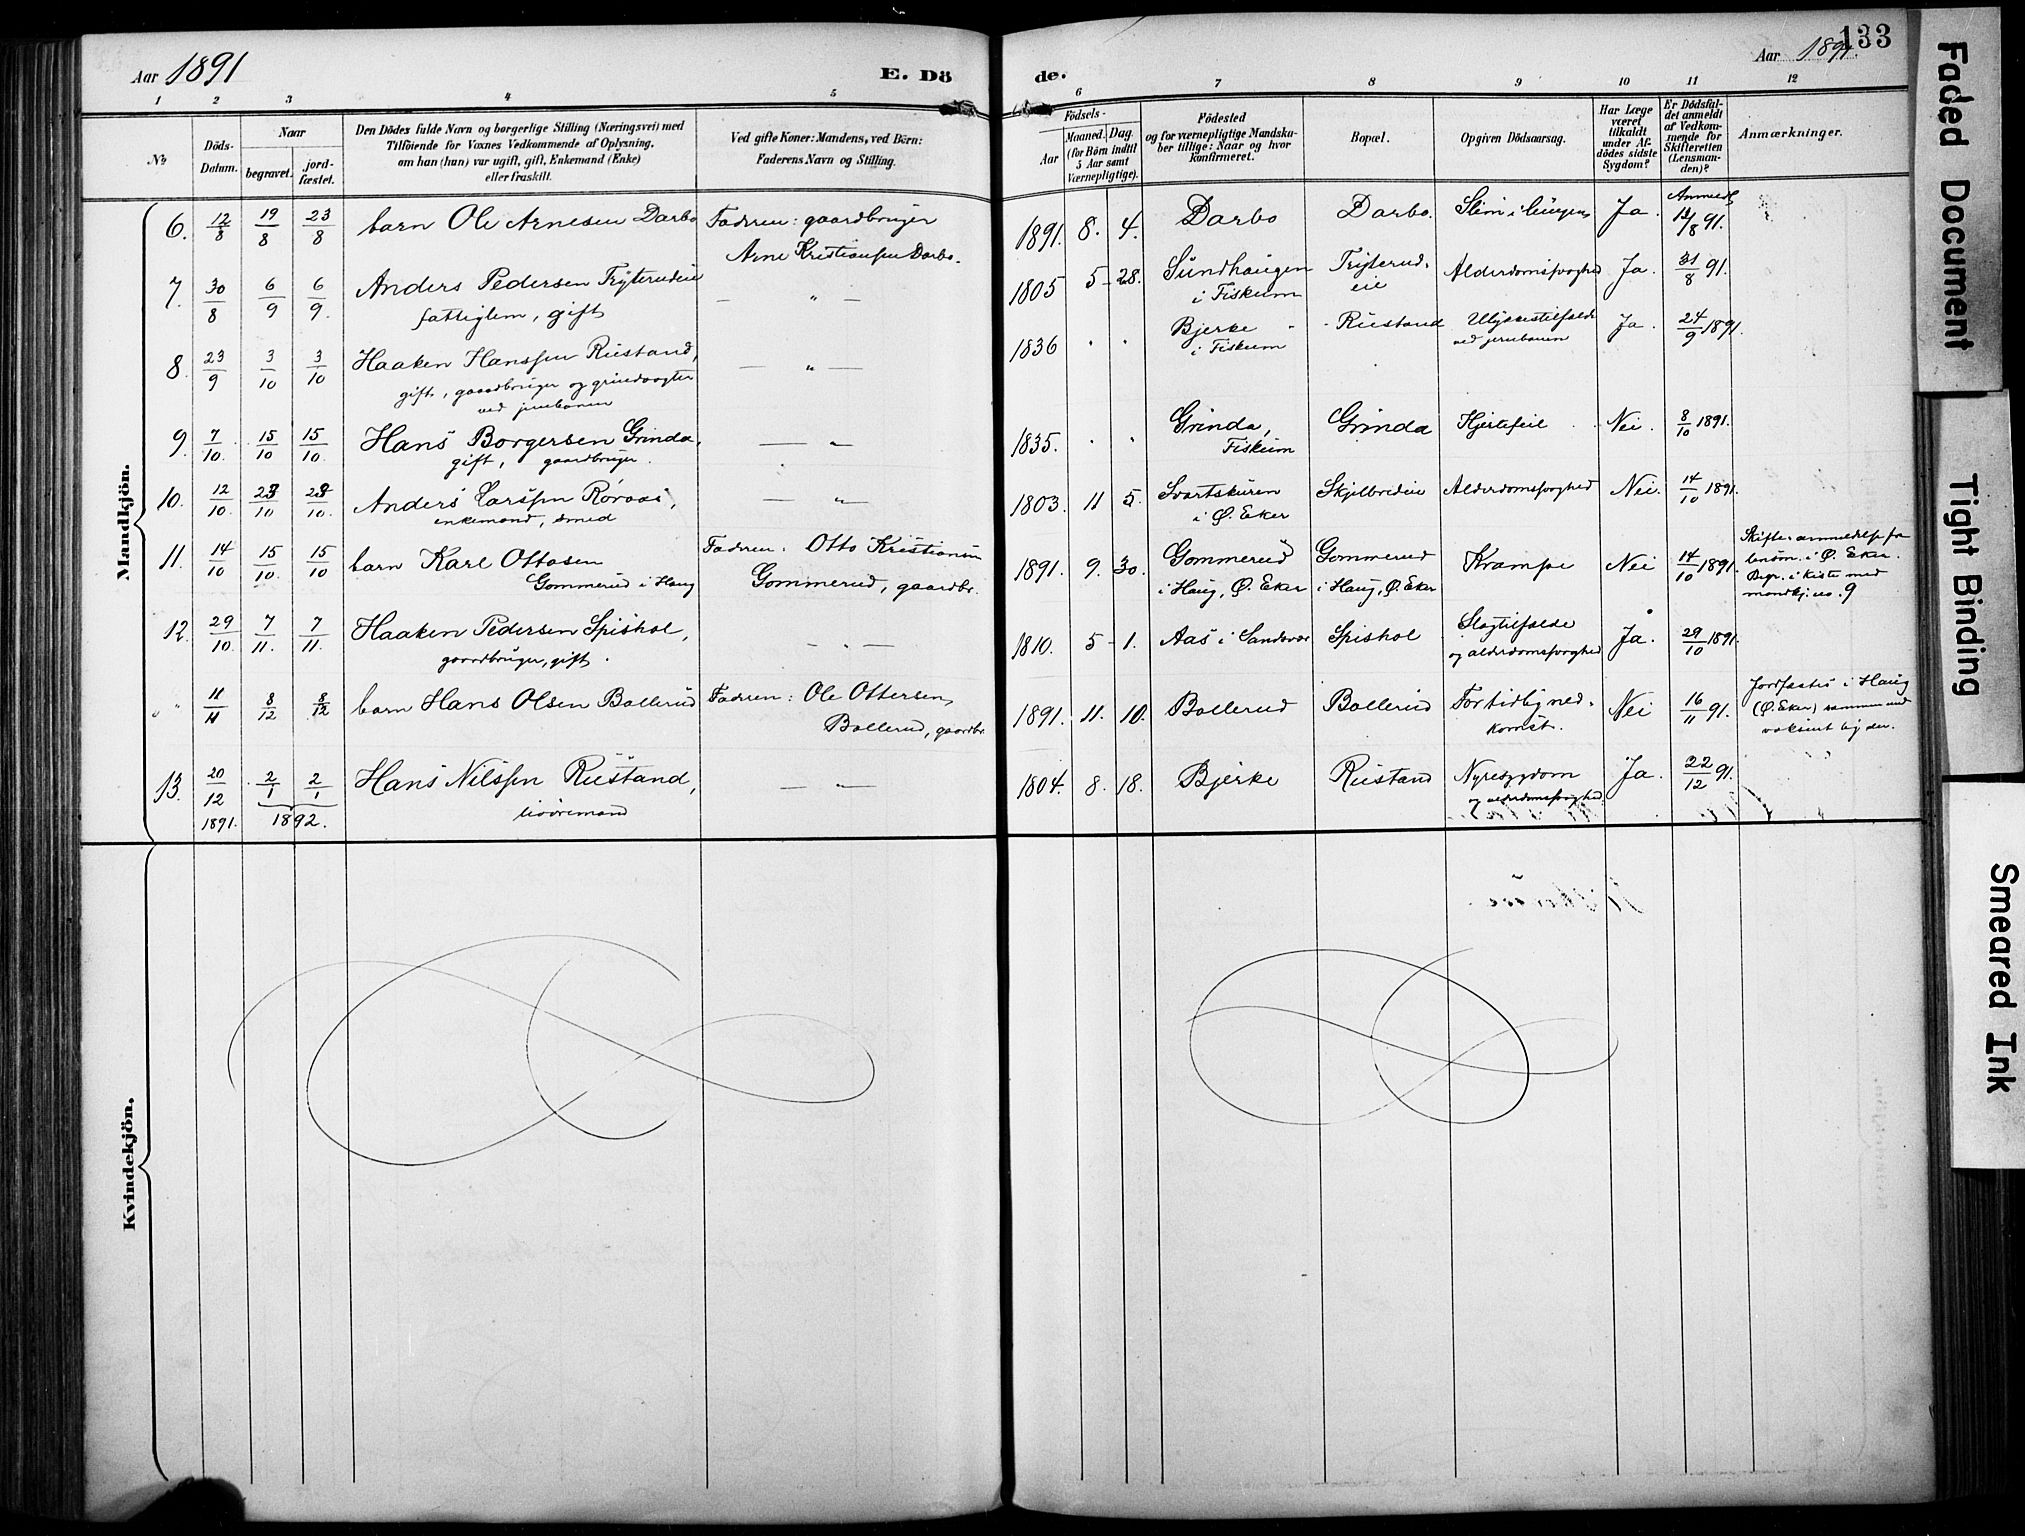 Aar 1891
E. Dö
de.
Aar 1891.
133
1 2 3 4 5 6 7 8 9 10 11 12
№
Döds-
Datum.
Naar
begravet.
jord-
fæstet.
Den Dödes fulde Navn og borgerlige Stilling (Næringsvei) med
Tilföiende for Voxnes Vedkommende af Oplysning,
om han (hun) var ugift, gift, Enkemand (Enke)
eller fraskilt.
Ved gifte Koner: Mandens, ved Börn:
Faderens Navn og Stilling.
Födsels-
Aar
Maaned. Dag.
(for Börn indtil
5 Aar samt
Værnepligtige).
Födested
og for værnepligtige Mandska-
ber tillige: Naar og hvor
konfirmeret.
Bopæl.
Opgiven Dödsaarsag.
Har Læge
været
tilkaldt
under Af-
dödes sidste
Sygdom?
Er Dödsfal-
det anmeldt
af Vedkom-
mende for
Skifteretten
(Lensman-
den)?
Anmærkninger.
Mandkjön.
6. 12/8 19/8 23/8 barn Ole Arnesen Darbo Faderen: gaardbruger
Arne Kristiansen Darbo.
1891. 8. 4. Darbo Darbo. Slim i lungen Ja. Anmeldt
12/8 91.
7. 30/8 6/9 6/9. Anders Pedersen Tryterudeie
fattiglem, gift
— „ —
1805 5 - 28. Sundhaugen
i Fiskum
Tryterud-
eie
Alderdomssvaghed Ja. 31/8 91.
8. 23/9 3/10 3/10 Haaken Hanssen Rustand,
gift, gaardbruger og grindvogter
ved jernbanen
— „ —
1836 Bjerke
i Fiskum
Rustand Ulykkestilfælde
ved jernbanen
Ja. 24/9 1891.
9. 7/10. 15/10 15/10. Hans Borgersen Grinda,
gift, gaardbruger.
— „
1835. Grinda,
Fiskum
Grinda Hjertefeil Nei. 8/10 1891.
10. 12/10. 23/10 23/10. Anders Larssen Róraas,
enkemand, smed
— „
1803. 11 5. Svartskuren
i Ø. Eker
Skjelbredeie Alderdomssvaghed Nei. 14/10 1891.
11. 14/10 15/10. 15/10 barn Karl Ottosen
Gommerud i Haug
Faderen: Otto Kristiansen
Gommerud, gaardbr.
1891. 9. 30. Gommerud
i Haug, Ø. Eker
Gommerud
i Haug, Ø. Eker
Krampe Nei 14/10 1891.
Skifteanmeldelse fra
lensm. i Ø. Eker.
Begr. i kiste med
mandkj. no. 9
12. 29/10. 7/11. 7/11. Haaken Pedersen Spishol,
gaardbruger, gift.
— „ —
1810. 5 - 1. Aas i Sandsvær Spishol Slagtilfælde
og alderdomssvaghed
Ja. 29/10 1891.
„ „ 11/11 8/12 8/12 barn Hans Olsen Bollerud Faderen: Ole Ottersen
Bollerud, gaardbr.
1891. 11. 10. Bollerud Bollerud For tidlig ned-
komst.
Nei 16/11 91.
Jordfæstes i Haug
(Ø. Eker) sammen med
voksent lig der.
13. 20/12 1891. 2/1 2/1 1892. Hans Nilssen Rustand,
livóremand
— „ —
1804. 8. 18. Bjerke Rustand Nyresygdom
og alderdomssvaghed.
Ja. 22/12 91.
Kvindekjön.
Faded Document
Tight Binding
Smeared Ink